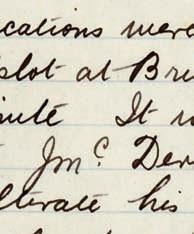 cations were
plot at Bru
inute It w
Jmc. Der
lterate his